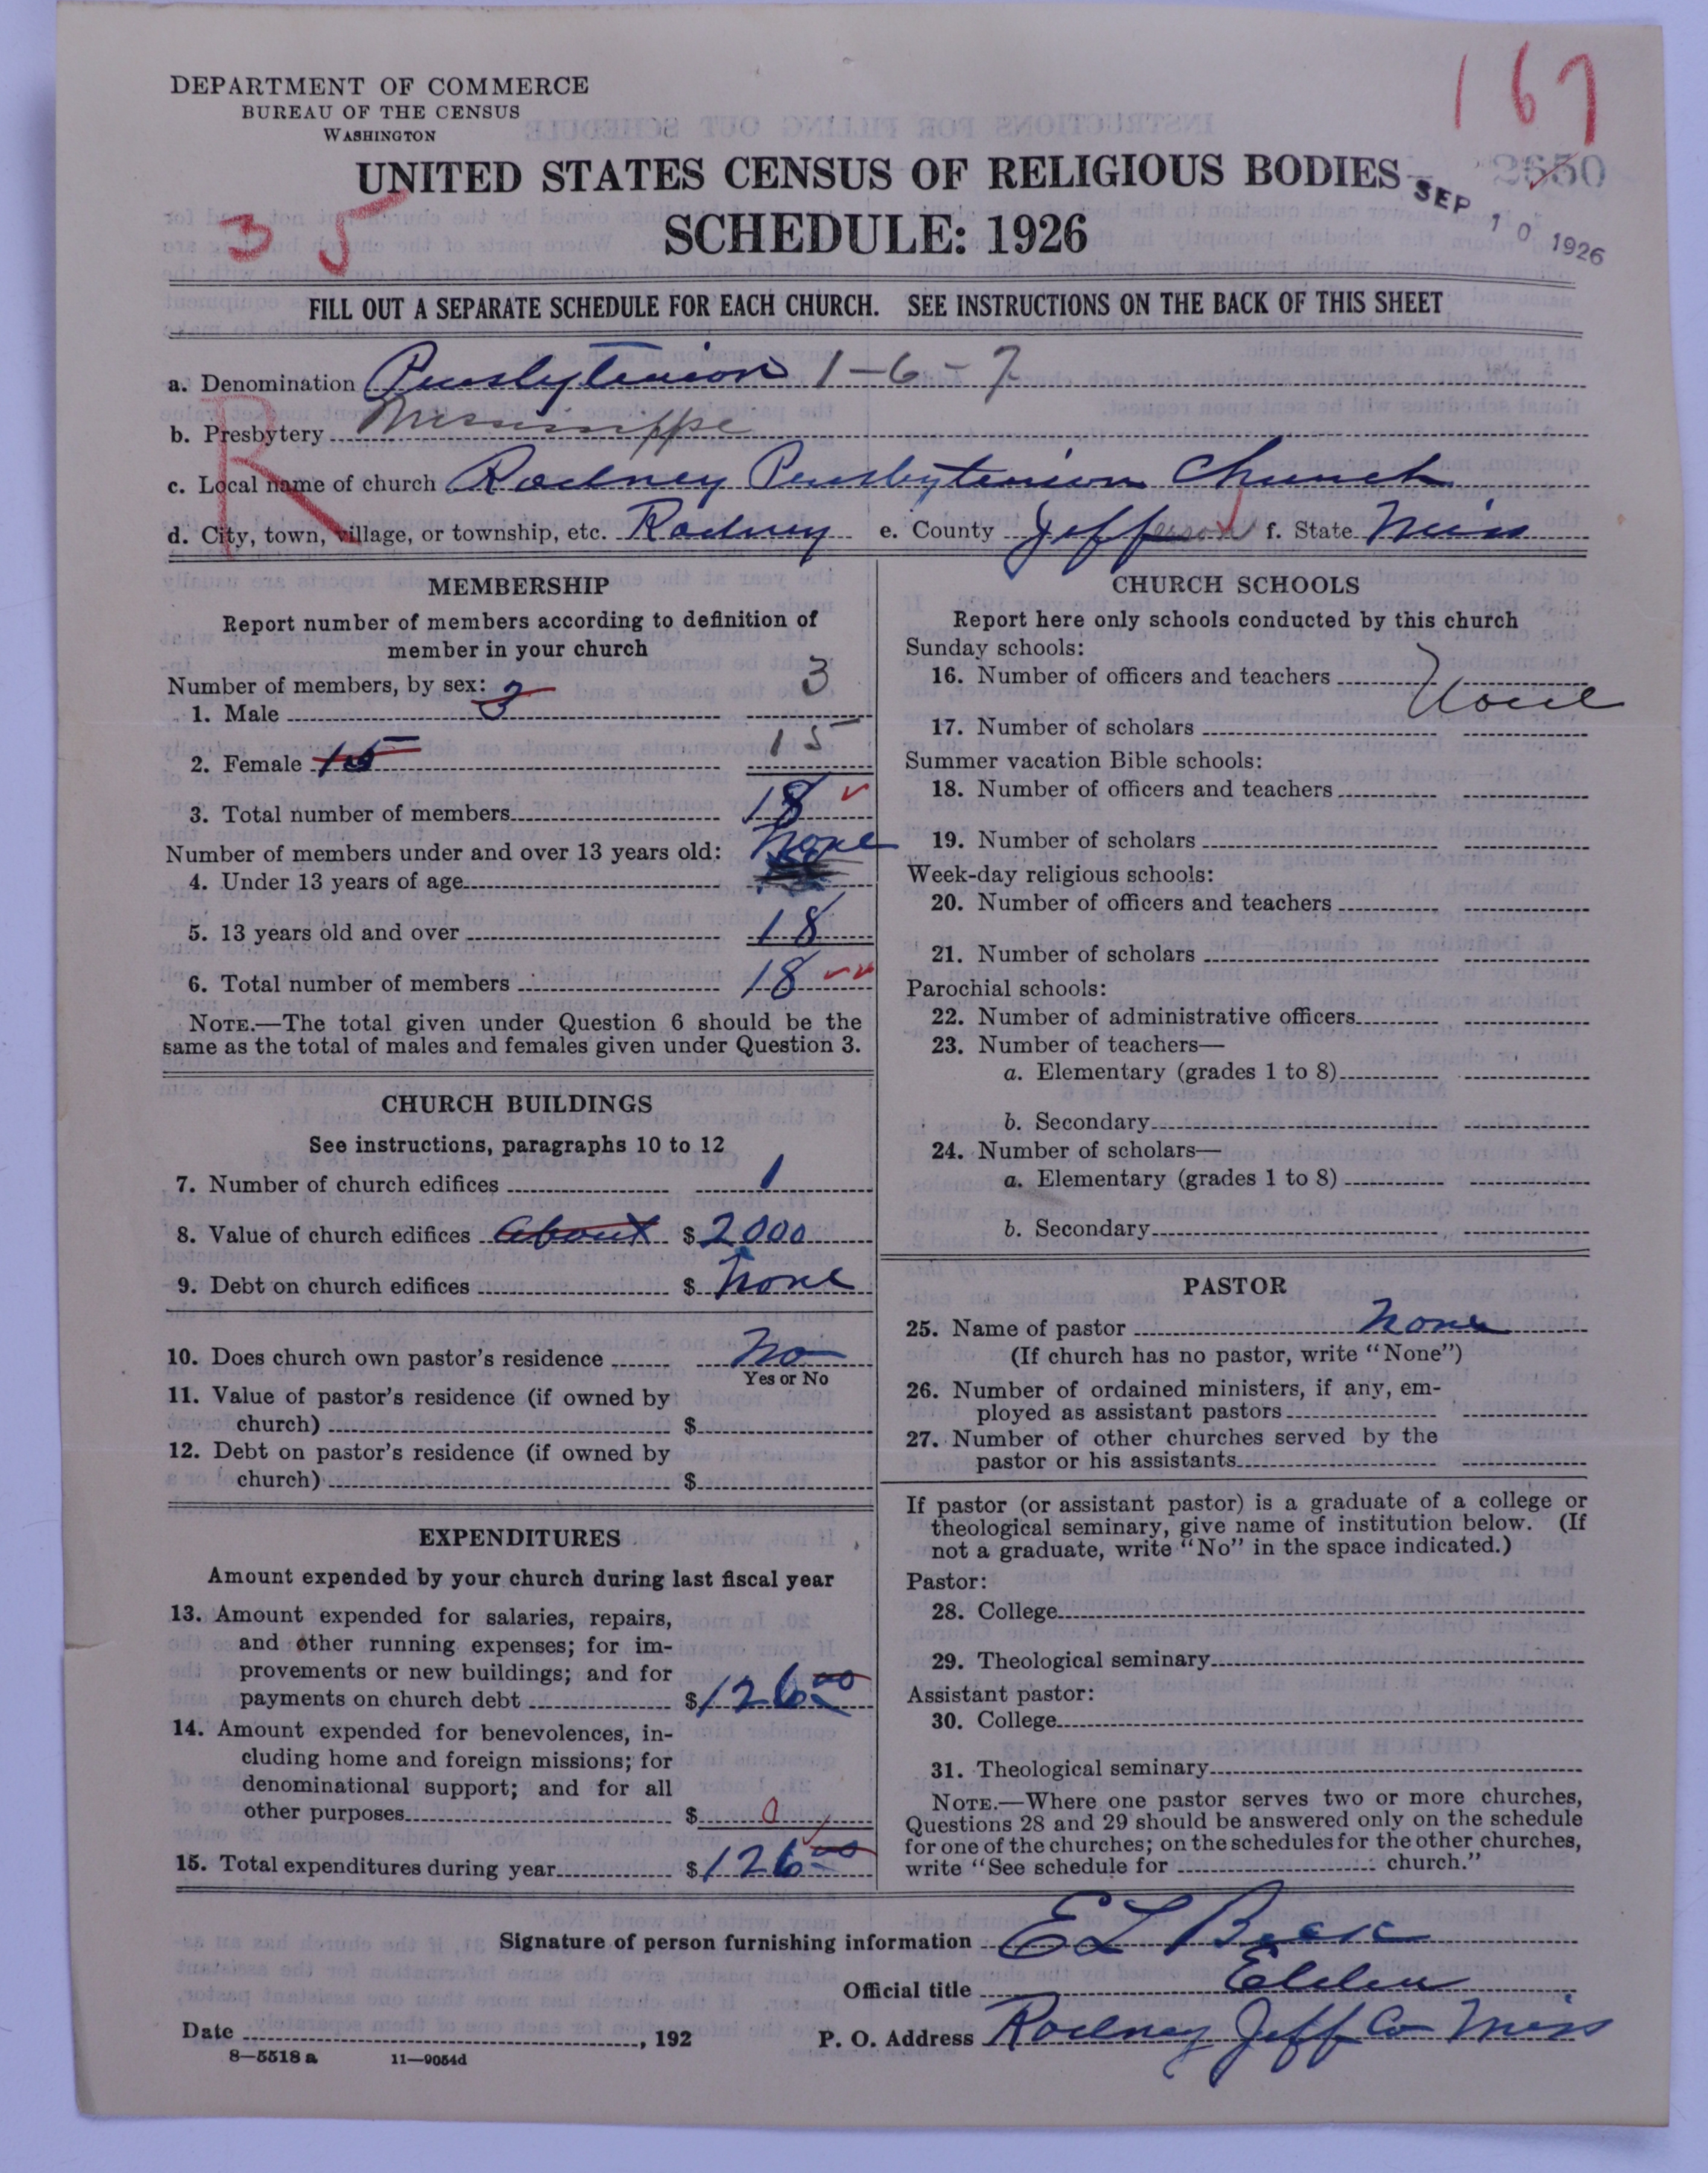 167
DEPARTMENT OF COMMERCE
BUREAU OF THE CENSUS
WASHINGTON
UNITED STATES CENSUS OF RELIGIOUS BODIES
SEP 10 1926
35
SCHEDULE: 1926
FILL OUT A SEPARATE SCHEDULE FOR EACH CHURCH. SEE INSTRUCTIONS ON THE BACK OF THIS SHEET
a. Denomination Presbyterian 1-6-7
b. Presbytery Mississippi
R
c. Local name of church Rodney Presbyterian Church
d. City, town, village, or township, etc. Rodney e. County Jefferson f. State Miss
MEMBERSHIP
Report number of members according to definition of
member in your church
Number of members, by sex:
1. Male 3 3
2. Female 15 15
3. Total number of members 18
Number of members under and over 13 years old:
4. Under 13 years of age None
5. 13 years old and over 18
6. Total number of members 18
NOTE.—The total given under Question 6 should be the
same as the total of males and females given under Question 3.
CHURCH BUILDINGS
See instructions, paragraphs 10 to 12
7. Number of church edifices 1
8. Value of church edifices about $ 2000
9. Debt on church edifices $ None
10. Does church own pastor's residence No
Yes or No
11. Value of pastor's residence (if owned by
church) $
12. Debt on pastor's residence (if owned by
church) $
EXPENDITURES
Amount expended by your church during last fiscal year
13. Amount expended for salaries, repairs,
and other running expenses; for im-
provements or new buildings; and for
payments on church debt $ 126 00
14. Amount expended for benevolences, in-
cluding home and foreign missions; for
denominational support; and for all
other purposes $ 0
15. Total expenditures during year $ 126 00
CHURCH SCHOOLS
Report here only schools conducted by this church
Sunday schools:
16. Number of officers and teachers None
17. Number of scholars
Summer vacation Bible schools:
18. Number of officers and teachers
19. Number of scholars
Week-day religious schools:
20. Number of officers and teachers
21. Number of scholars
Parochial schools:
22. Number of administrative officers
23. Number of teachers—
a. Elementary (grades 1 to 8)
b. Secondary
24. Number of scholars—
a. Elementary (grades 1 to 8)
b. Secondary
PASTOR
25. Name of pastor None
(If church has no pastor, write "None")
26. Number of ordained ministers, if any, em-
ployed as assistant pastors
27. Number of other churches served by the
pastor or his assistants
If pastor (or assistant pastor) is a graduate of a college or
theological seminary, give name of institution below. (If
not a graduate, write "No" in the space indicated.)
Pastor:
28. College
29. Theological seminary
Assistant pastor:
30. College
31. Theological seminary
NOTE.—Where one pastor serves two or more churches,
Questions 28 and 29 should be answered only on the schedule
for one of the churches; on the schedules for the other churches,
write "See schedule for church."
Signature of person furnishing information E L
Official title Elder
Date , 192 P. O. Address Rodney Jeff Co Miss
8—5518 a 11—9054d